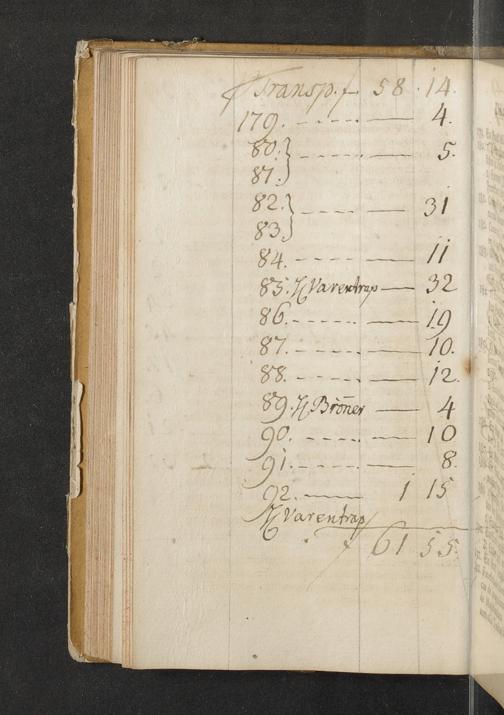 Transp. f 58 . 14.
179. - - - - — 4.
80. }
- - - - — 5.
81. }
82. }
- - - - — 31
83. }
84. - - - - — 11
85. H Varentrap — 32
86. - - - - — 19
87. - - - - — 10.
88. - - - - — 12.
89. H Broñer — 4
90. - - - - — 10
91. - - - - — 8.
92. —— 1 15
H Varentrap
f 61 55.